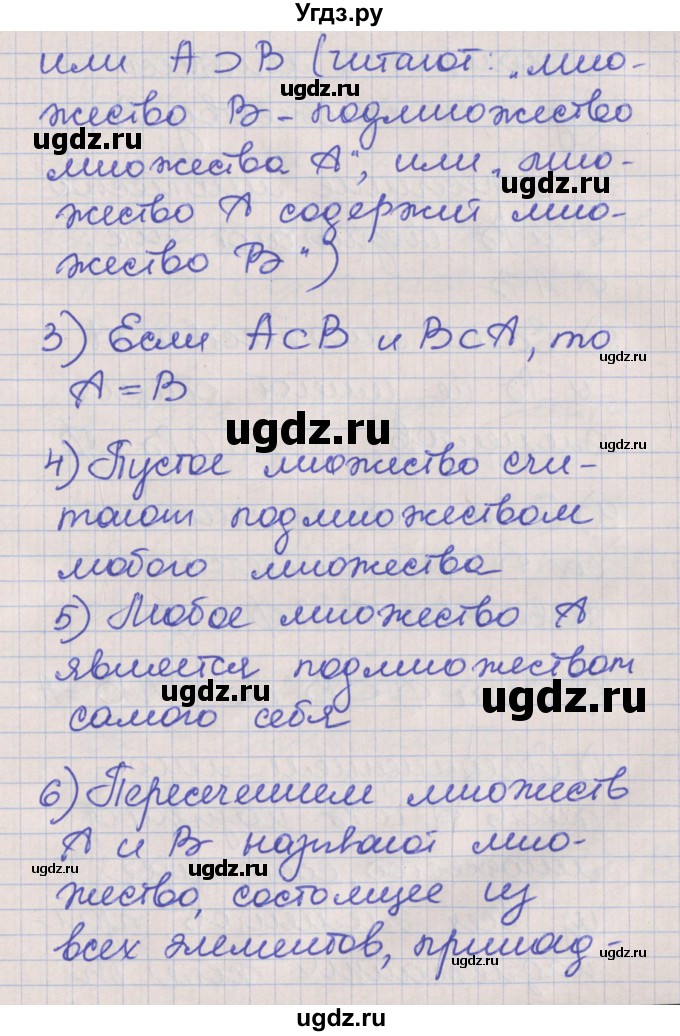 Угдз.ру
или A ⊃ B (читают: „мно-
жество B - подмножество
множества A“, или „мно-
жество A содержит мно-
жество B“)
3) Если A⊂B и B⊂A, то
A = B
4) Пустое множество счи-
тают подмножеством
любого множества
5) Любое множество A
является подмножеством
самого себя
6) Пересечением множеств
A и B называют мно-
жество, состоящее из
всех элементов, принад-
ugdz.ru
ugdz.ru
ugdz.ru
ugdz.ru
ugdz.ru
ugdz.ru
ugdz.ru
ugdz.ru
ugdz.ru
ugdz.ru
ugdz.ru
ugdz.ru